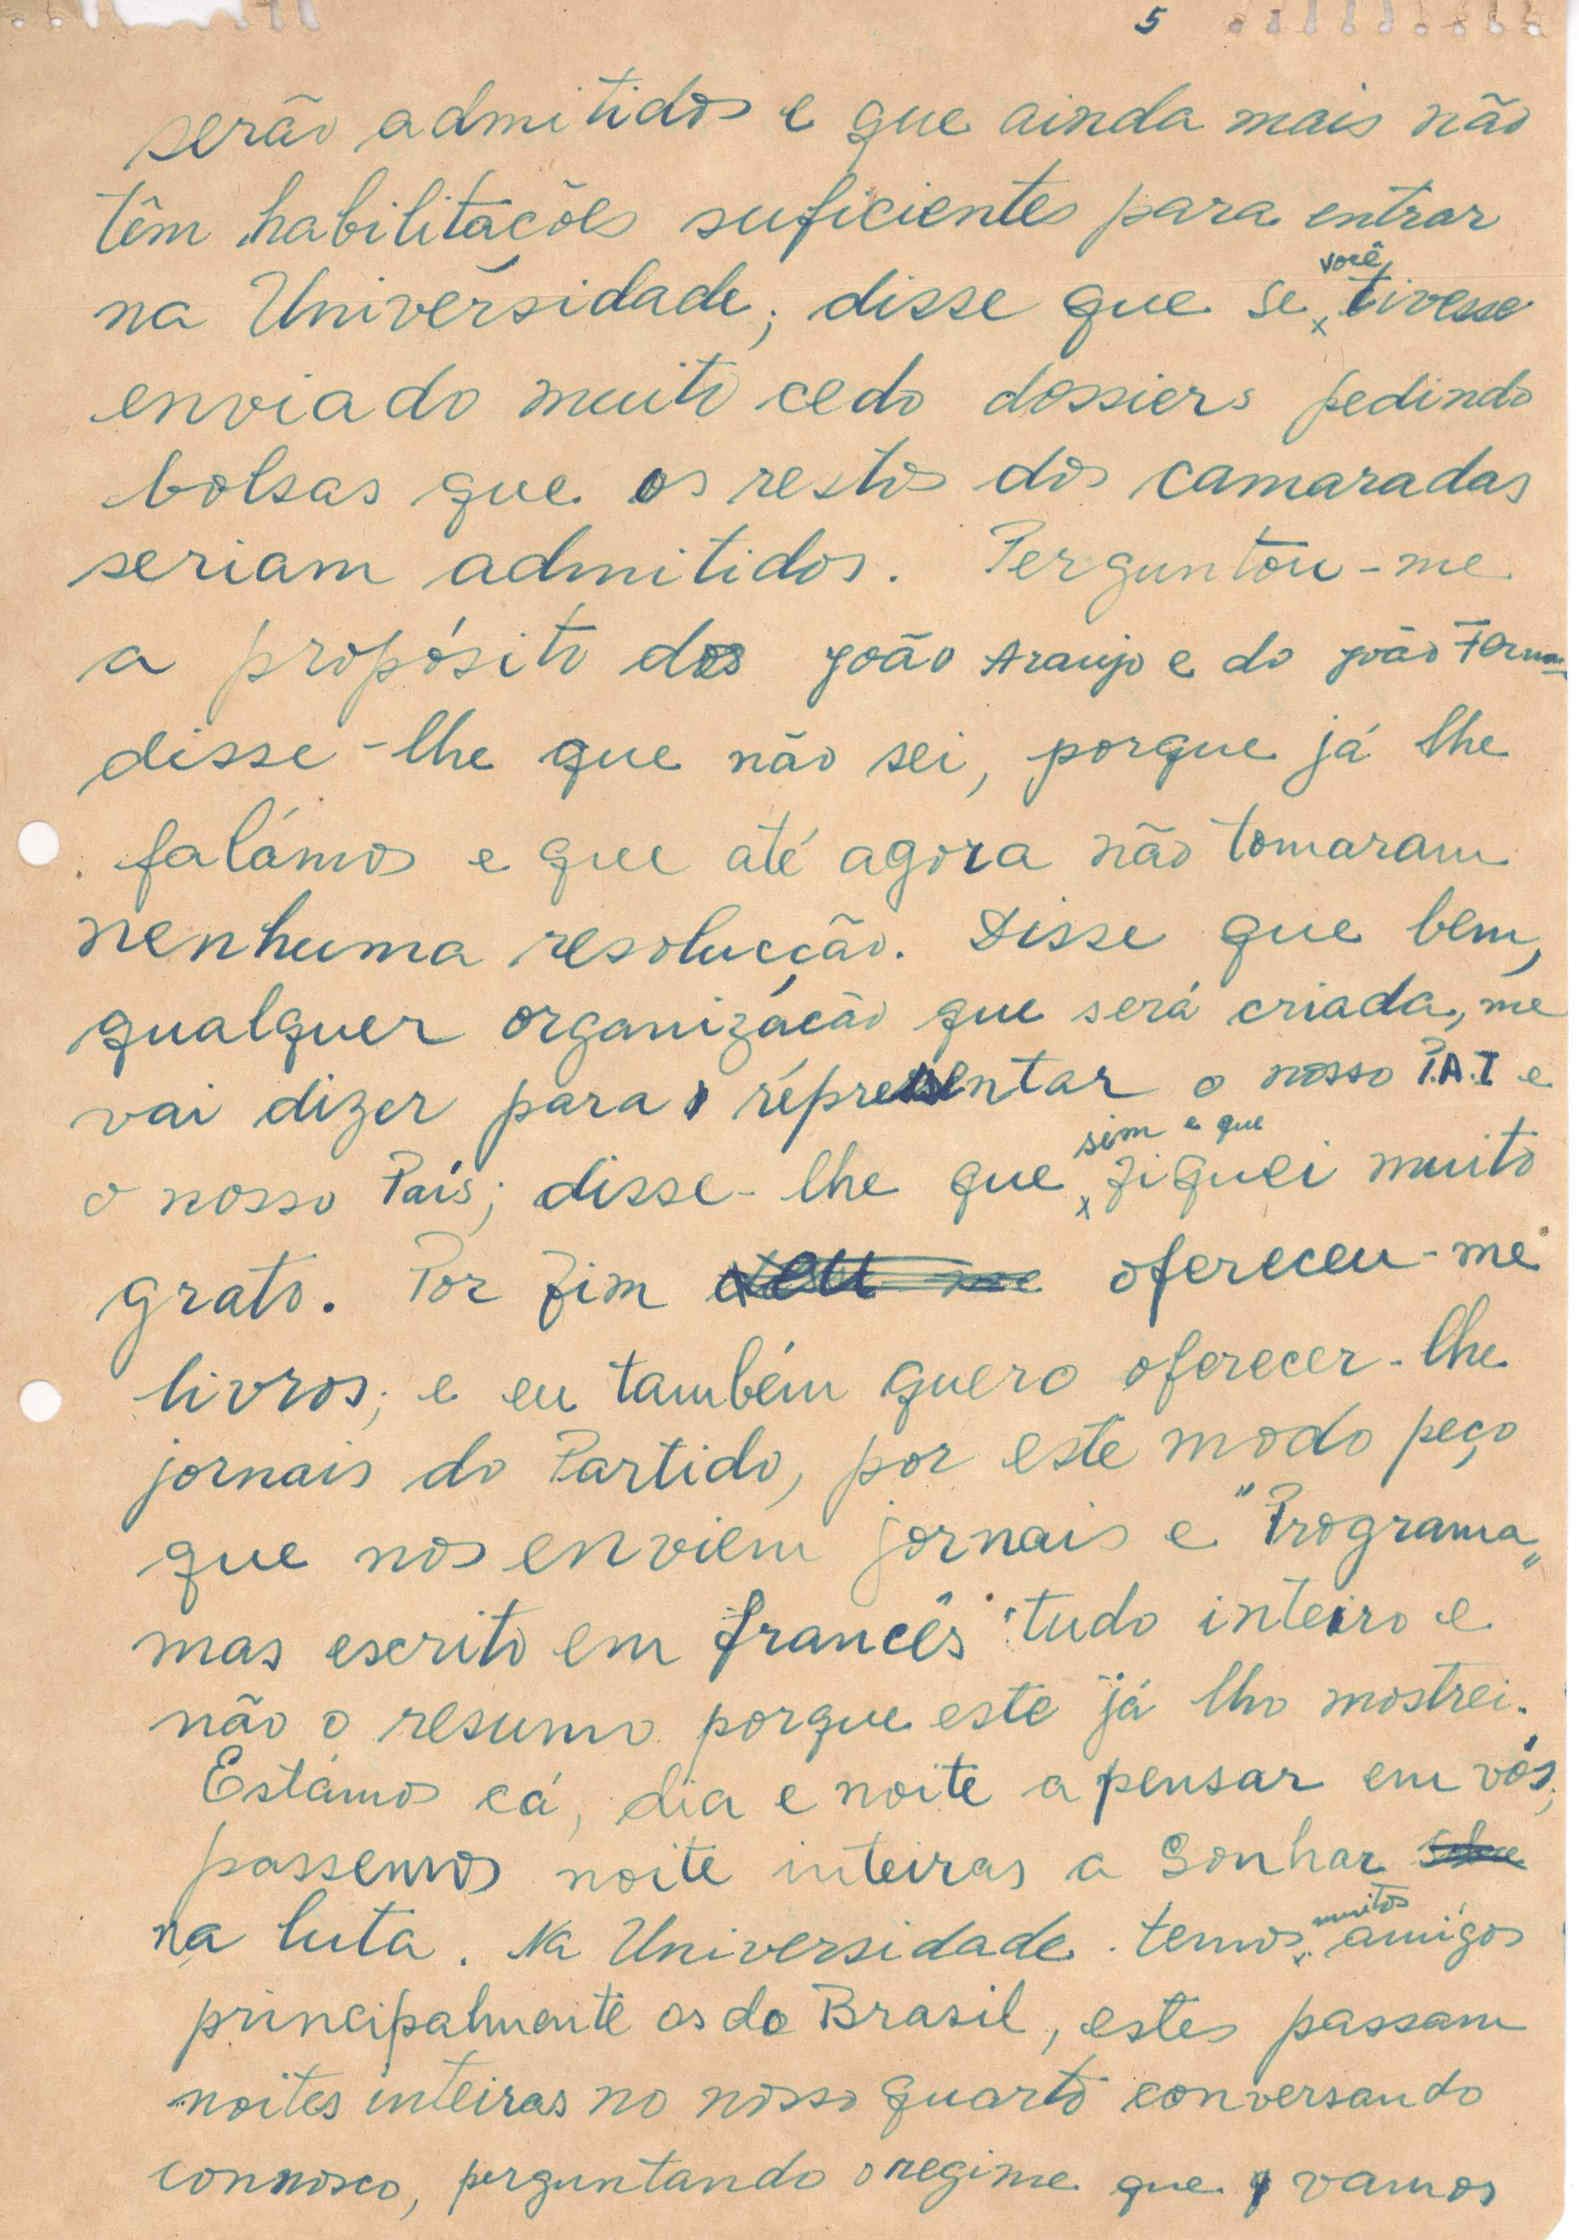 5
serão admitidos e que ainda mais não
têm habilitações suficientes para entrar
na Universidade; disse que se você tivesse
enviado muito cedo dossiers pedindo
bolsas que os restos dos camaradas
seriam admitidos. Perguntou-me
a propósito dos João Araujo e do João
disse-lhe que não sei, porque já lhe
falámos e que até agora não tomaram
nenhuma resolucção. Disse que bem,
qualquer organização que será criada, me
vai dizer para representar o nosso P.A.I e
o nosso País; disse-lhe que sim e que fiquei muito
grato. Por fim ofereceu-me
livros; e eu também quero oferecer-lhe
jornais do Partido, por este modo peço
que nos enviem jornais e "Programa"
mas escrito em francês tudo inteiro e
não o resumo porque este já lho mostrei.
Estámos cá, dia e noite a pensar em vós;
passemos noite inteiras a Sonhar
na luta. Na Universidade temos muitos amigos
principalmente os do Brasil, estes passam
noites inteiras no nosso quarto conversando
connosco, perguntando o regime que vamos